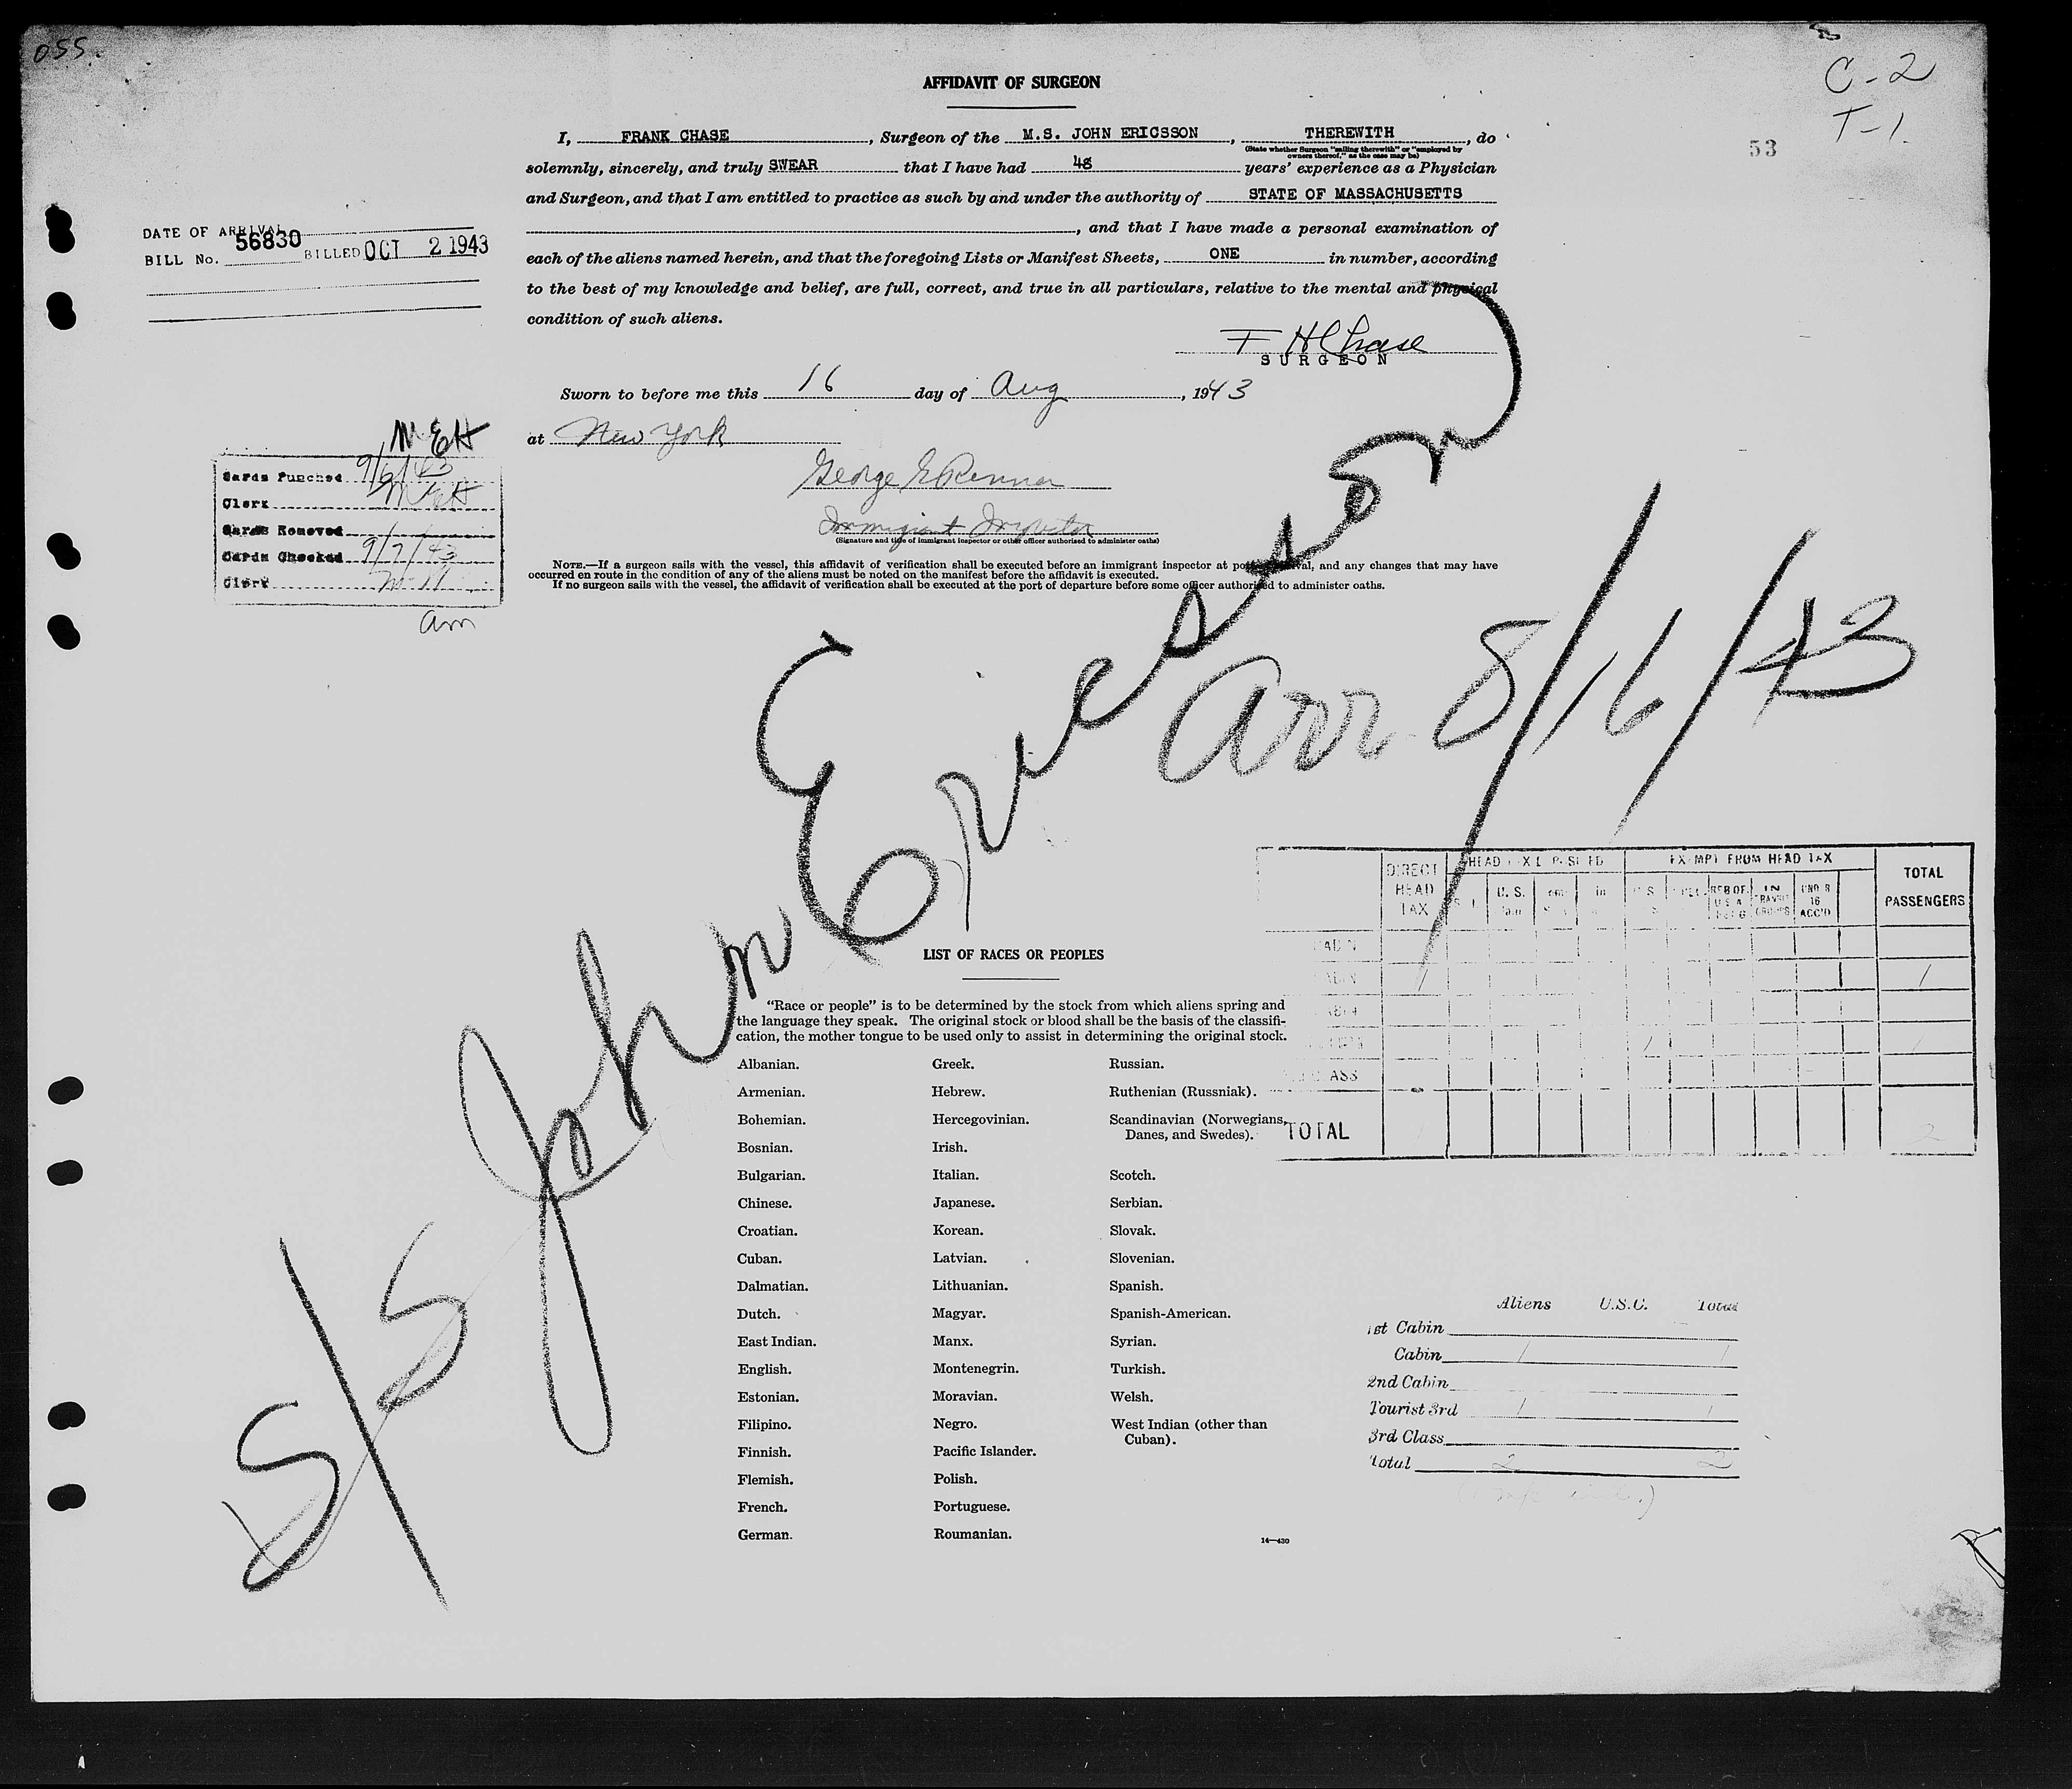 055.
C-2
T-1
53
AFFIDAVIT OF SURGEON
I, FRANK CHASE, Surgeon of the M.S. JOHN ERICSSON, THEREWITH, do
(State whether Surgeon "sailing therewith" or "employed by
owners thereof," as the case may be)
solemnly, sincerely, and truly SWEAR that I have had 48 years' experience as a Physician
and Surgeon, and that I am entitled to practice as such by and under the authority of STATE OF MASSACHUSETTS
, and that I have made a personal examination of
each of the aliens named herein, and that the foregoing Lists or Manifest Sheets, ONE in number, according
to the best of my knowledge and belief, are full, correct, and true in all particulars, relative to the mental and physical
condition of such aliens.
F H Chase
SURGEON
Sworn to before me this 16 day of Aug, 1943
at New York
George E Renner
Immigrant Inspector
(Signature and title of immigrant inspector or other officer authorized to administer oaths)
NOTE.—If a surgeon sails with the vessel, this affidavit of verification shall be executed before an immigrant inspector at port of arrival, and any changes that may have
occurred en route in the condition of any of the aliens must be noted on the manifest before the affidavit is executed.
If no surgeon sails with the vessel, the affidavit of verification shall be executed at the port of departure before some officer authorized to administer oaths.
DATE OF ARRIVAL
BILL No. 56830 BILLED OCT 2 1943
MEH
Cards Punched 9/6/43
Clerk MEH
Cards Removed
Cards Checked 9/7/43
Clerk
am
S/S John Ericsson
arr 8/16/43
DIRECT HEAD TAX
EXEMPT FROM HEAD TAX
TOTAL PASSENGERS
U. S.
IN TRANSIT
16 ACC'D
1 1
TOTAL 2
LIST OF RACES OR PEOPLES
"Race or people" is to be determined by the stock from which aliens spring and
the language they speak. The original stock or blood shall be the basis of the classifi-
cation, the mother tongue to be used only to assist in determining the original stock.
Albanian.
Armenian.
Bohemian.
Bosnian.
Bulgarian.
Chinese.
Croatian.
Cuban.
Dalmatian.
Dutch.
East Indian.
English.
Estonian.
Filipino.
Finnish.
Flemish.
French.
German.
Greek.
Hebrew.
Hercegovinian.
Irish.
Italian.
Japanese.
Korean.
Latvian.
Lithuanian.
Magyar.
Manx.
Montenegrin.
Moravian.
Negro.
Pacific Islander.
Polish.
Portuguese.
Roumanian.
Russian.
Ruthenian (Russniak).
Scandinavian (Norwegians,
Danes, and Swedes).
Scotch.
Serbian.
Slovak.
Slovenian.
Spanish.
Spanish-American.
Syrian.
Turkish.
Welsh.
West Indian (other than
Cuban).
14—430
Aliens U.S.C. Total
1st Cabin
Cabin 1 1
2nd Cabin
Tourist 3rd 1 1
3rd Class
Total 2 2